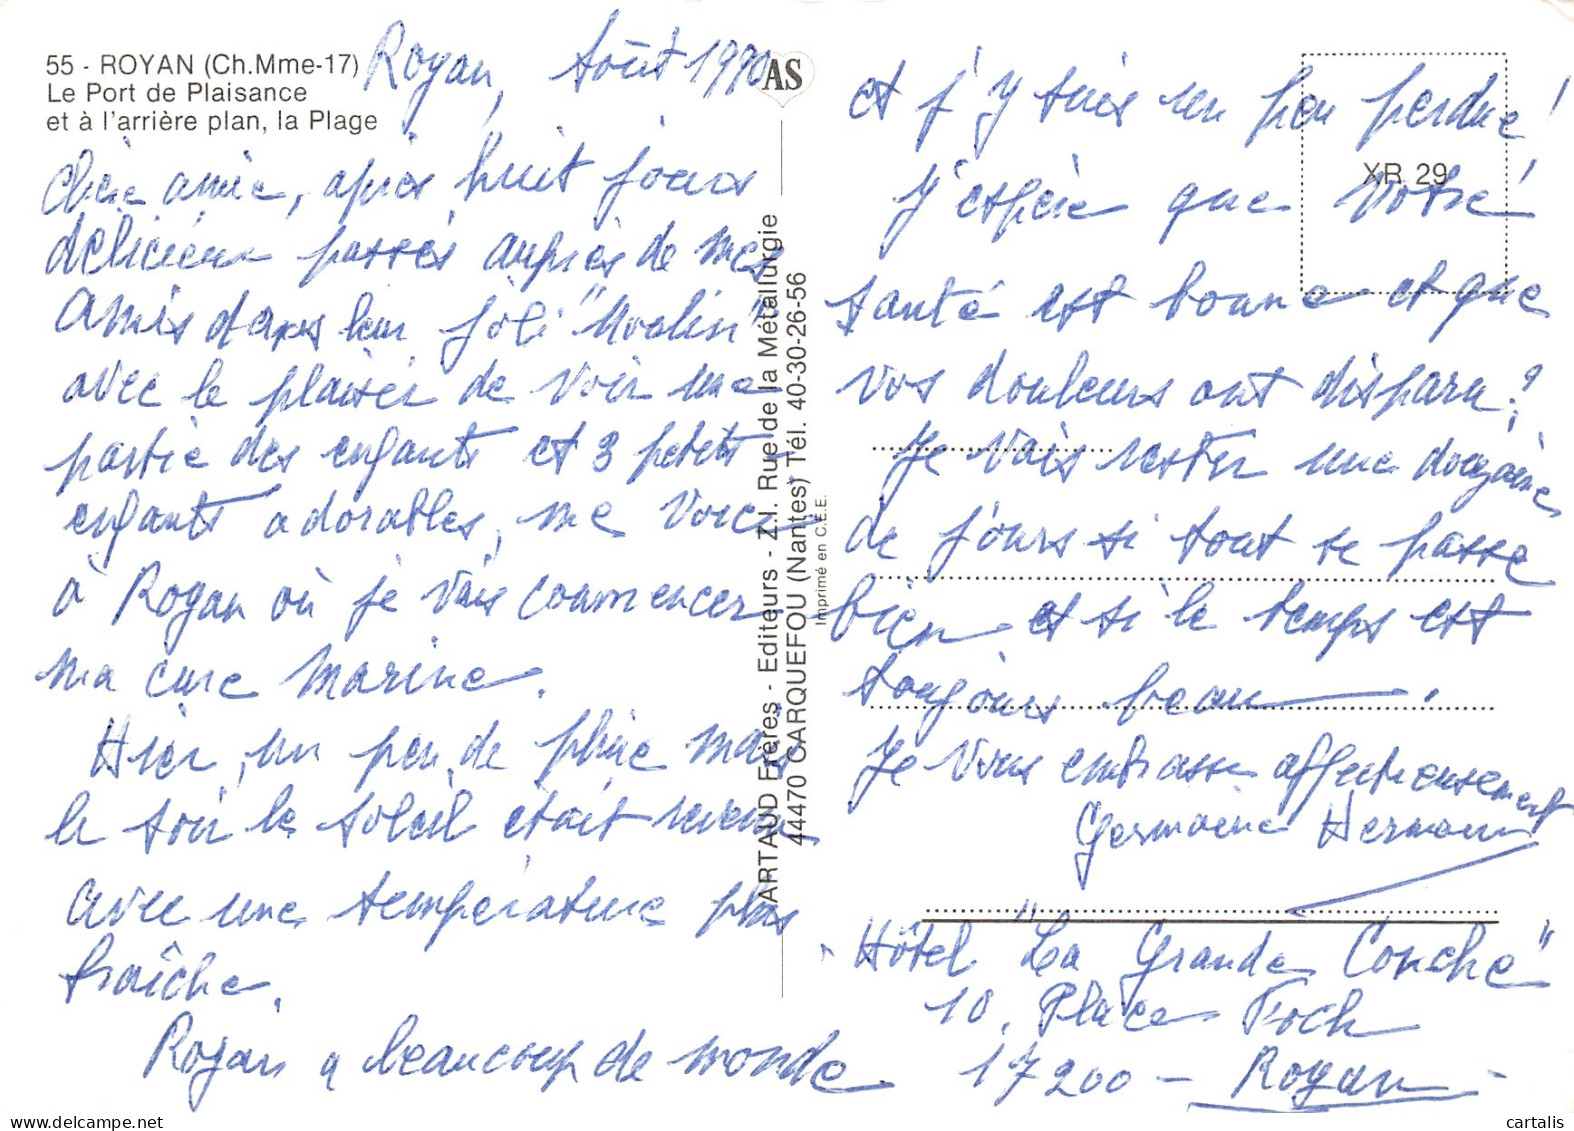 55 - ROYAN (Ch.Mme-17)
Le Port de Plaisance
et à l'arrière plan, la Plage
Royan, Août 1990
Chère amie, après huit jours
délicieux passés auprès de mes
amis dans leur joli "Moulin"
avec le plaisir de voir une
partie des enfants et 3 petits-
enfants adorables, me voici
à Royan où je vais commencer
ma cure marine.
Hier, un peu de pluie mais
le soir le soleil était revenu
avec une température plus
fraîche.
Royan a beaucoup de monde
AS
ARTAUD Frères - Editeurs - Z.I. Rue de la Métallurgie
44470 CARQUEFOU (Nantes) Tél. 40-30-26-56
Imprimé en C.E.E.
XR 29
et j'y suis un peu perdue!
J'espère que votre
santé est bonne et que
vos douleurs ont disparu?
Je vais rester une douzaine
de jours si tout se passe
bien et si le temps est
toujours beau.
Je vous embrasse affectueusement
Germaine Hermann
Hôtel "La Grande Conche"
10, Place Foch
17200 - Royan -
cartalis